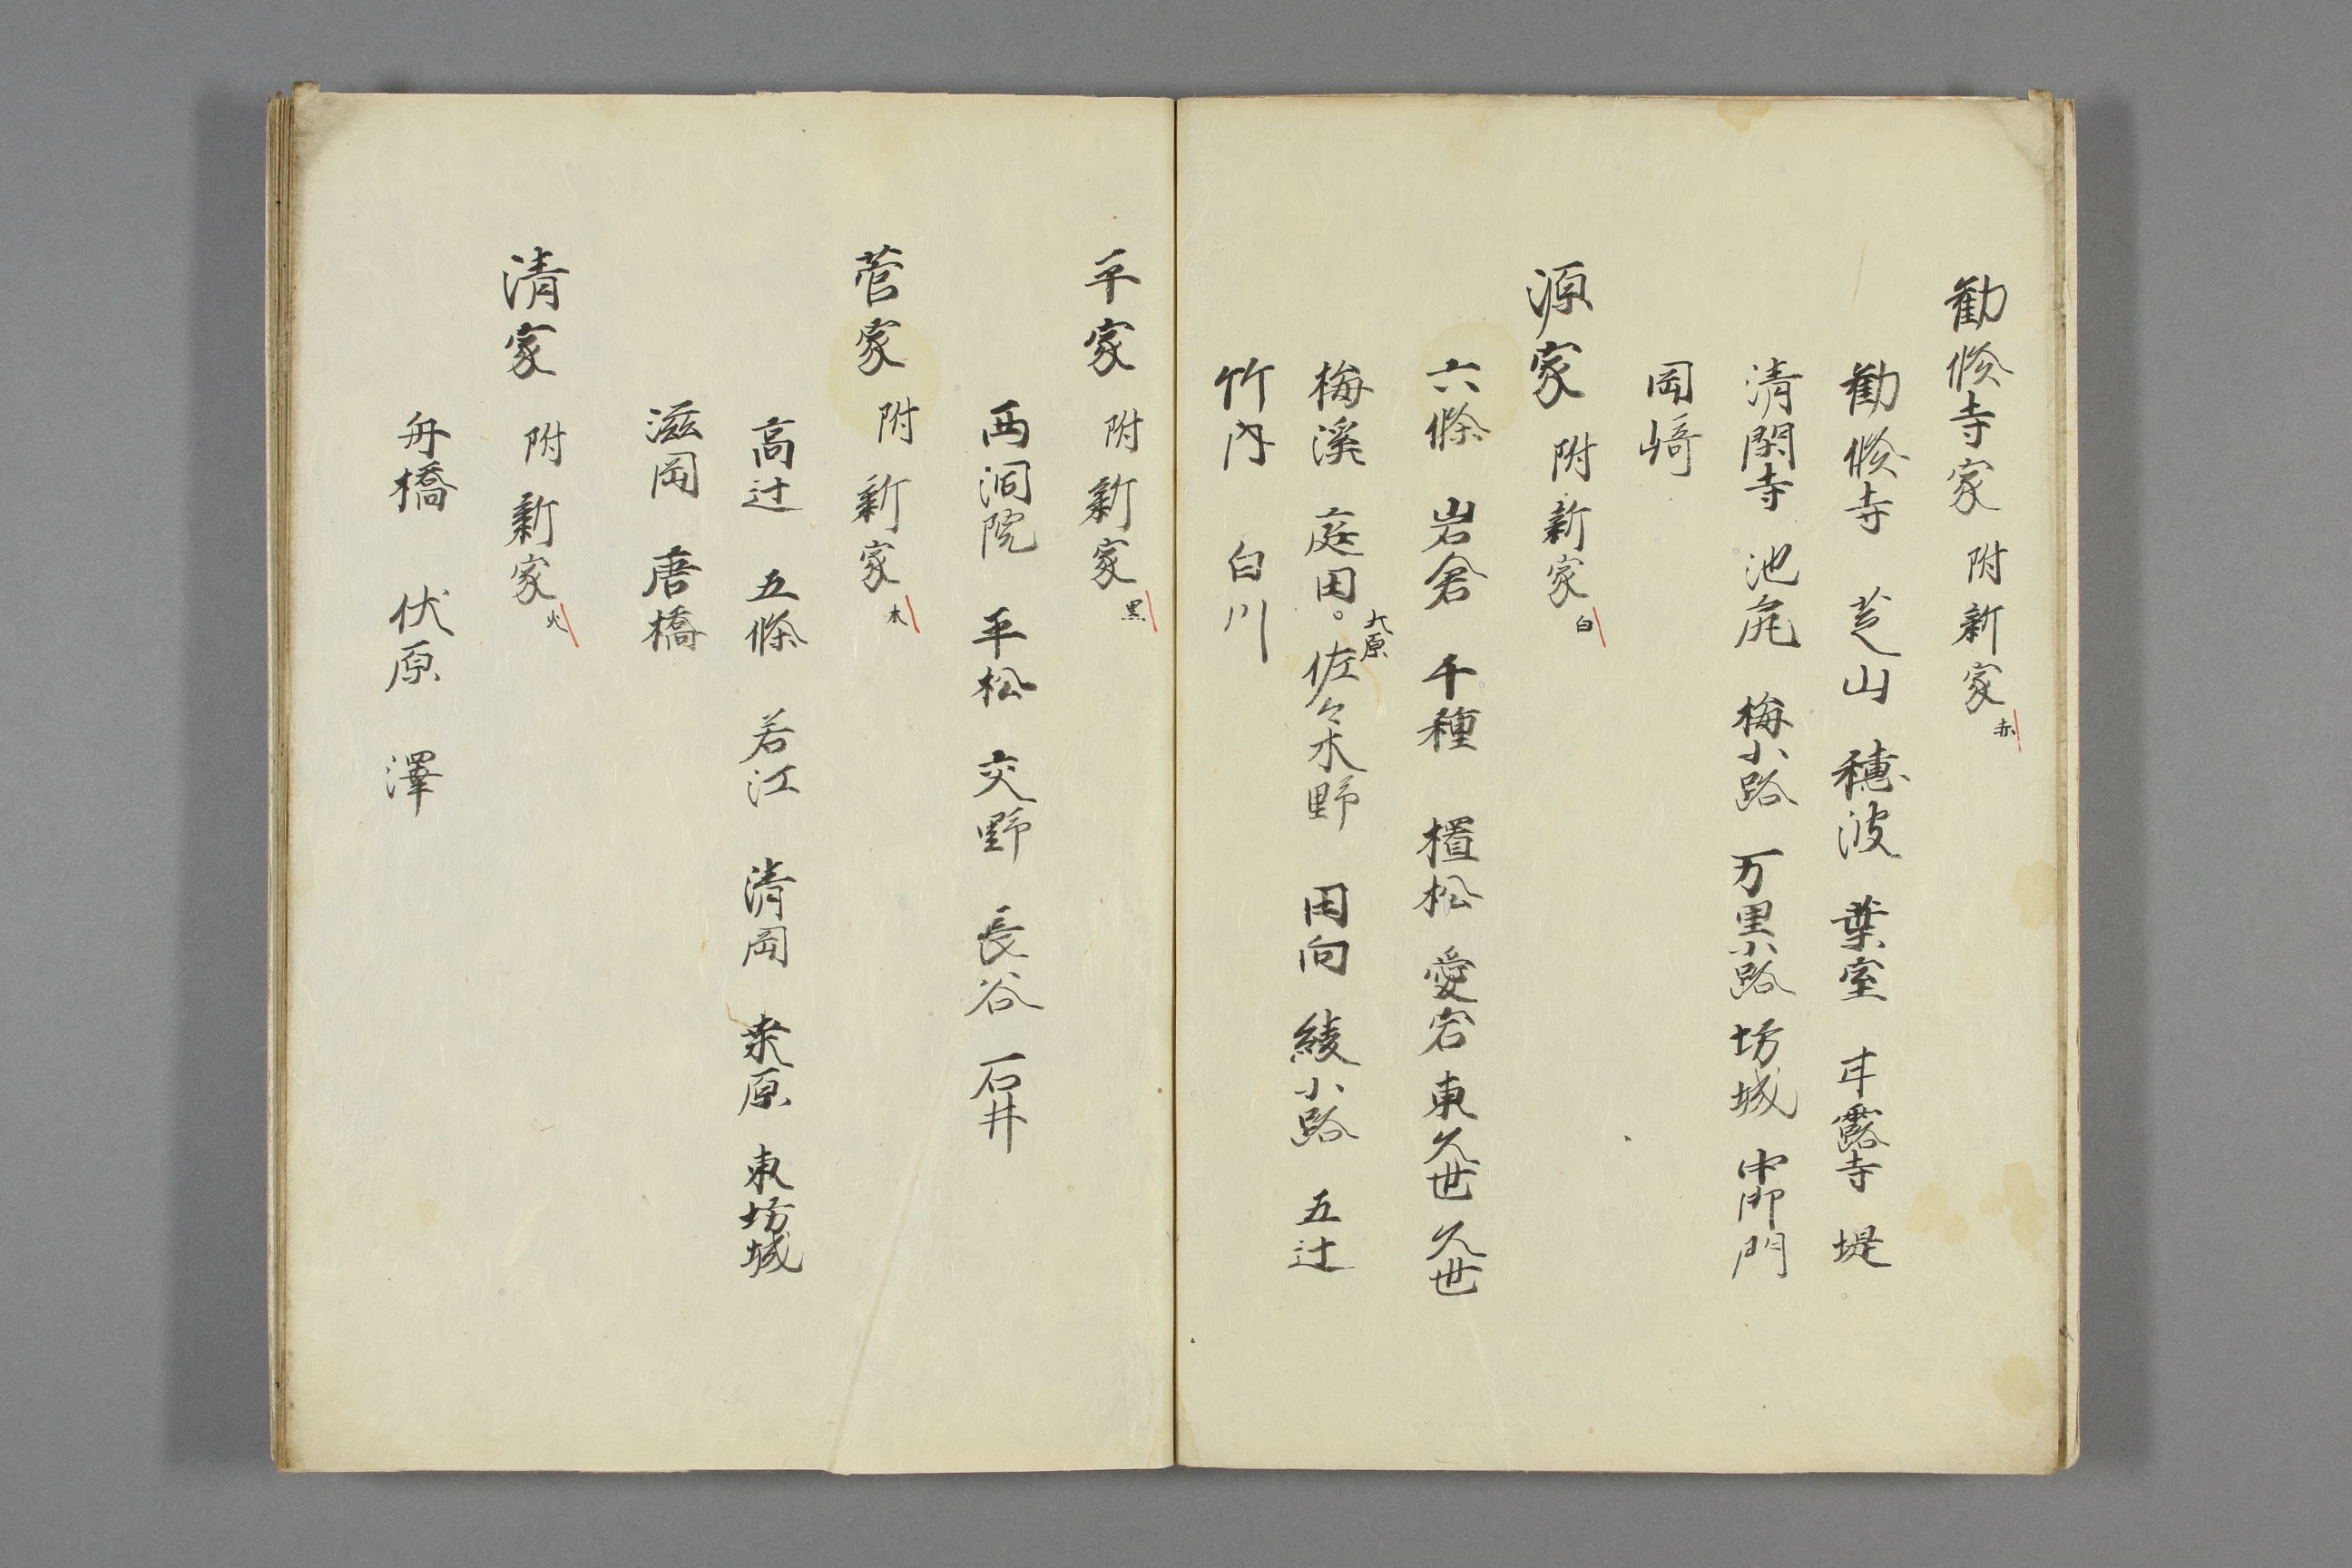 勧修寺家 附新家 赤
勧修寺 芝山 穂波 葉室 甘露寺 堤
清閑寺 池尻 梅小路 万里小路 坊城 中御門
岡﨑
源家 附新家 白
六條 岩倉 千種 植松 愛宕 東久世 久世
梅溪 庭田。大原 佐々木野 田向 綾小路 五辻
竹内 白川
平家 附新家 黒
西洞院 平松 交野 長谷 石井
菅家 附新家 木
高辻 五條 若江 清岡 桒原 東坊城
滋岡 唐橋
清家 附新家 火
舟橋 伏原 澤